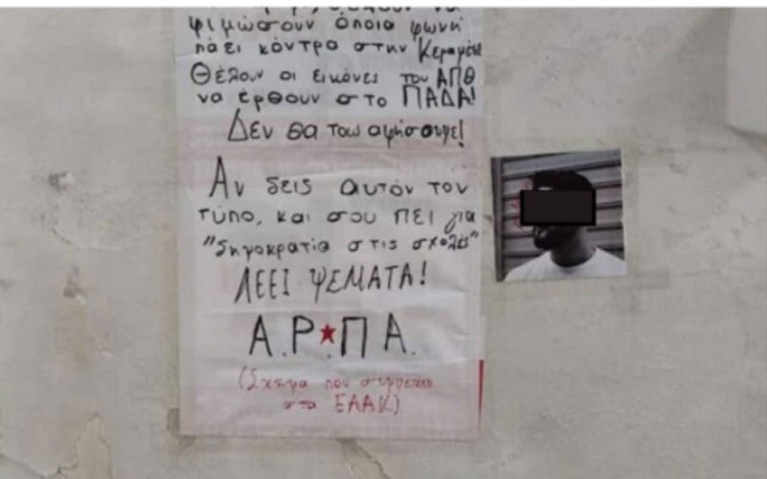 φιμώσουν όποια φωνή
πάει κόντρα στην
Θέλουν οι εικόνες του ΑΠΘ
να έρθουν στο ΠΑΔΑ!
Δεν θα τους αφήσουμε!
Αν δεις αυτόν τον
τύπο, και σου πει για
"δημοκρατία στις σχολές"
ΛΕΕΙ ΨΕΜΑΤΑ!
Α.Ρ★Π Α.
(Σχήμα που συμμετέχει
στα ΕΑΑΚ)